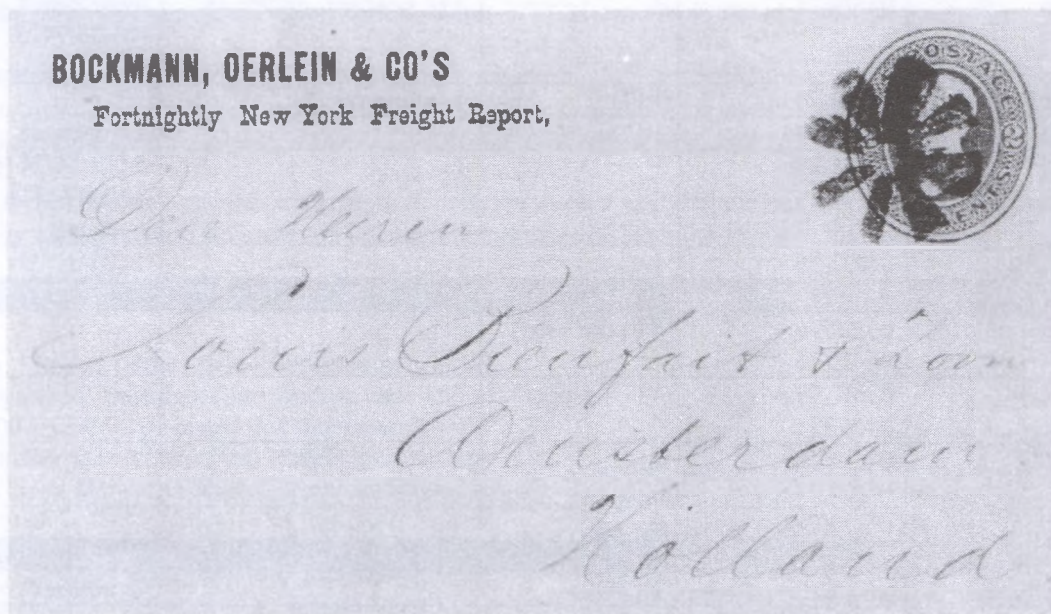 BOCKMANN, OERLEIN & CO'S
Fortnightly New York Freight Report,
POSTAGE
CENTS
Den Heeren
Louis Bienfait & Zoon
Amsterdam
Holland